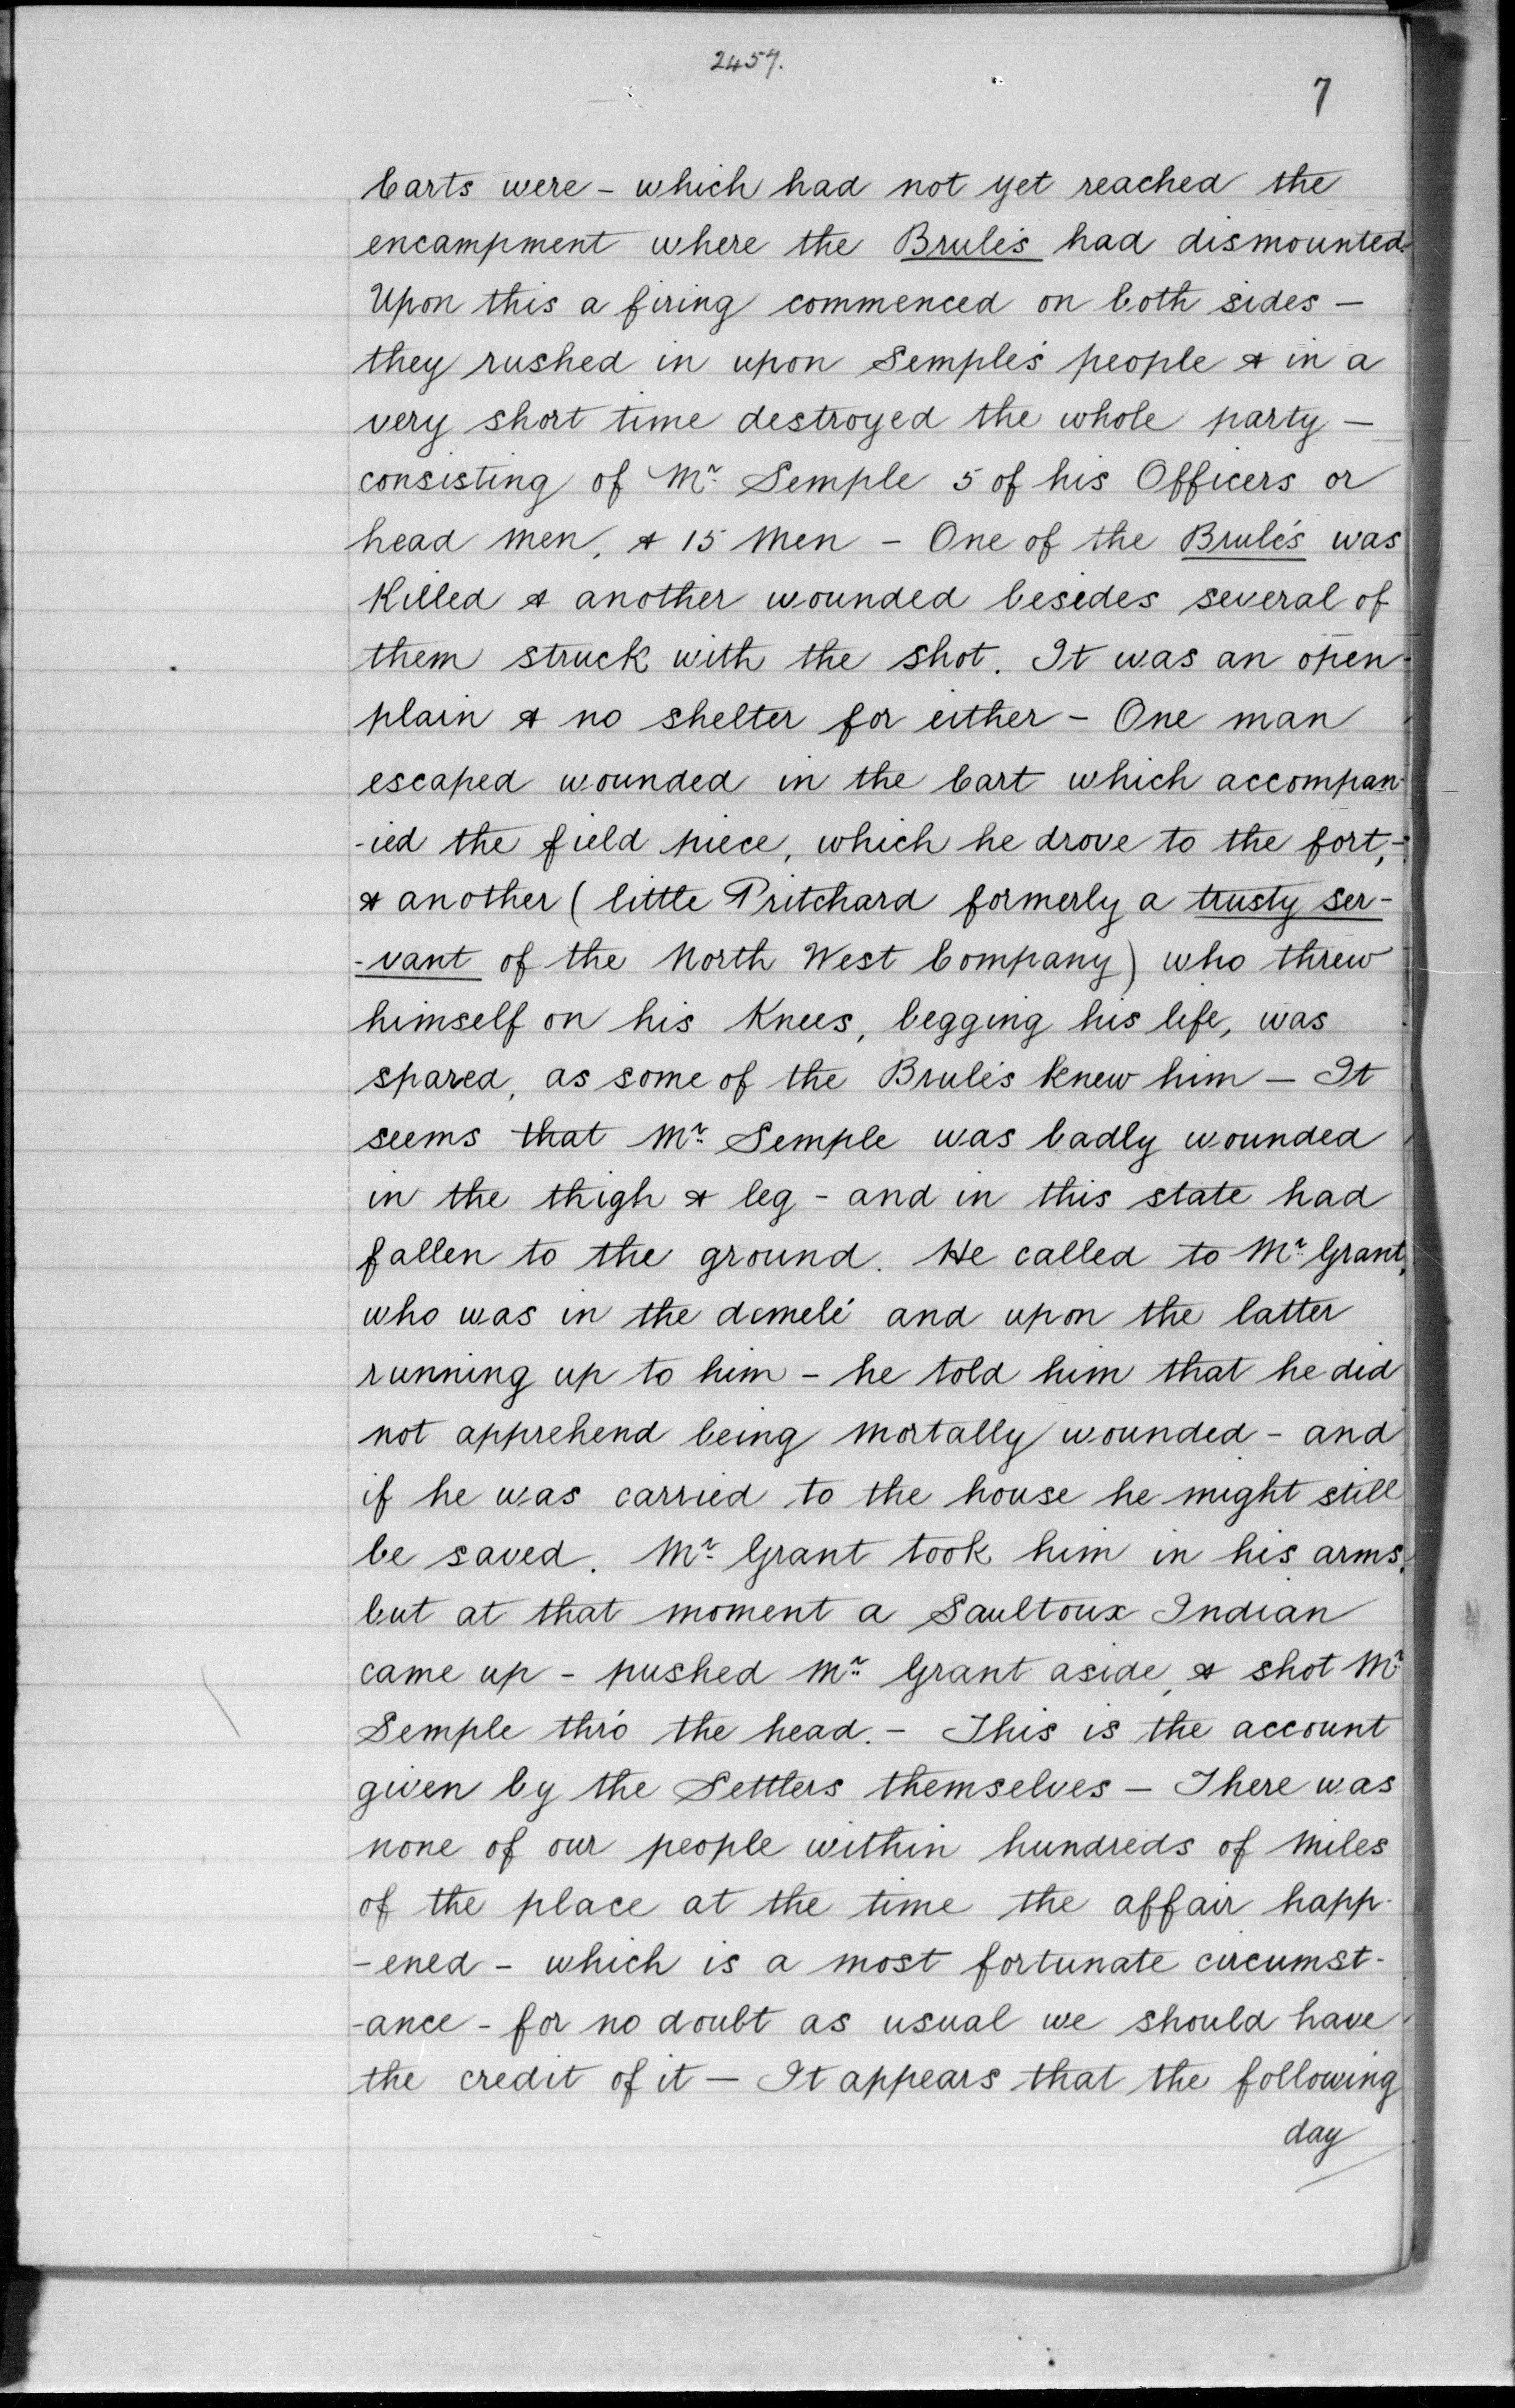 2457.
7
Carts were - which had not yet reached the
encampment where the Brulés had dismounted.
Upon this a firing commenced on both sides -
they rushed in upon Semple's people & in a
very short time destroyed the whole party -
consisting of Mr. Semple 5 of his Officers or
head men, & 15 Men - One of the Brulés was
Killed & another wounded besides several of
them struck with the shot. It was an open
plain & no shelter for either - One man
escaped wounded in the Cart which accompan-
-ied the field piece, which he drove to the fort, -
& another (little Pritchard formerly a trusty ser-
-vant of the North West Company) who threw
himself on his Knees, begging his life, was
spared, as some of the Brulés knew him - It
seems that Mr. Semple was badly wounded
in the thigh & leg - and in this state had
fallen to the ground. He called to Mr. Grant,
who was in the demelé and upon the latter
running up to him - he told him that he did
not apprehend being mortally wounded - and
if he was carried to the house he might still
be saved. Mr. Grant took him in his arms,
but at that moment a Saultoux Indian
came up - pushed Mr. Grant aside, & shot Mr.
Semple thro' the head. - This is the account
given by the Settlers themselves - There was
none of our people within hundreds of Miles
of the place at the time the affair happ-
-ened - which is a most fortunate circumst-
-ance - for no doubt as usual we should have
the credit of it - It appears that the following
day